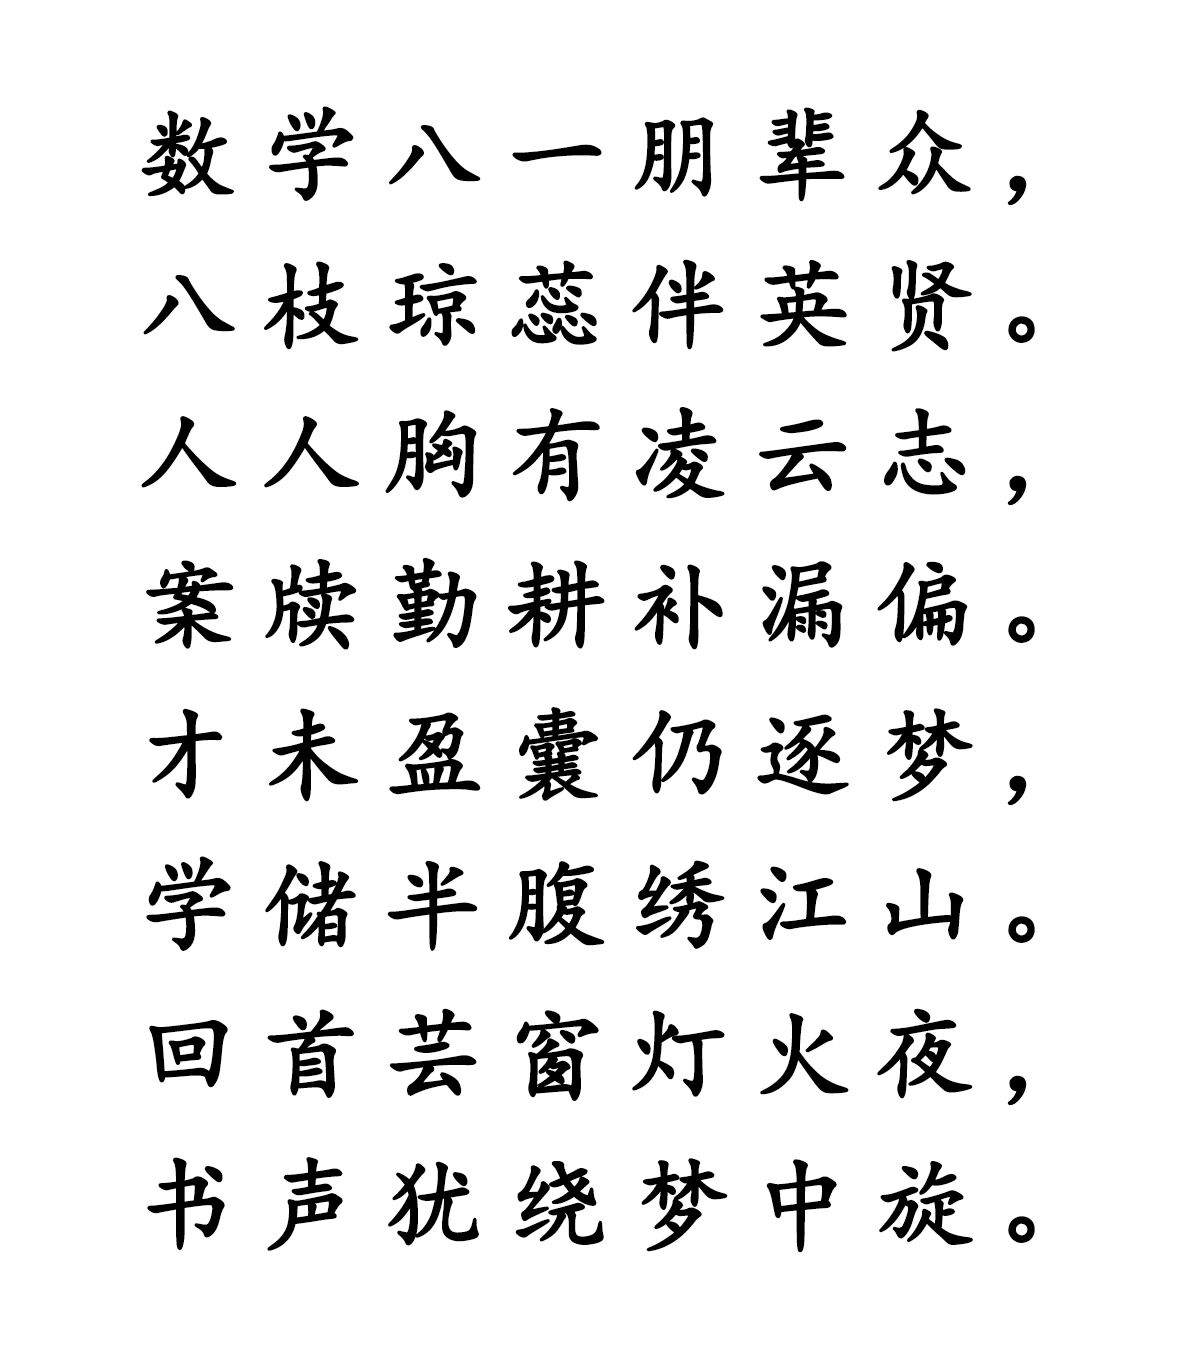 数学八一朋辈众，
八枝琼蕊伴英贤。
人人胸有凌云志，
案牍勤耕补漏偏。
才未盈囊仍逐梦，
学储半腹绣江山。
回首芸窗灯火夜，
书声犹绕梦中旋。